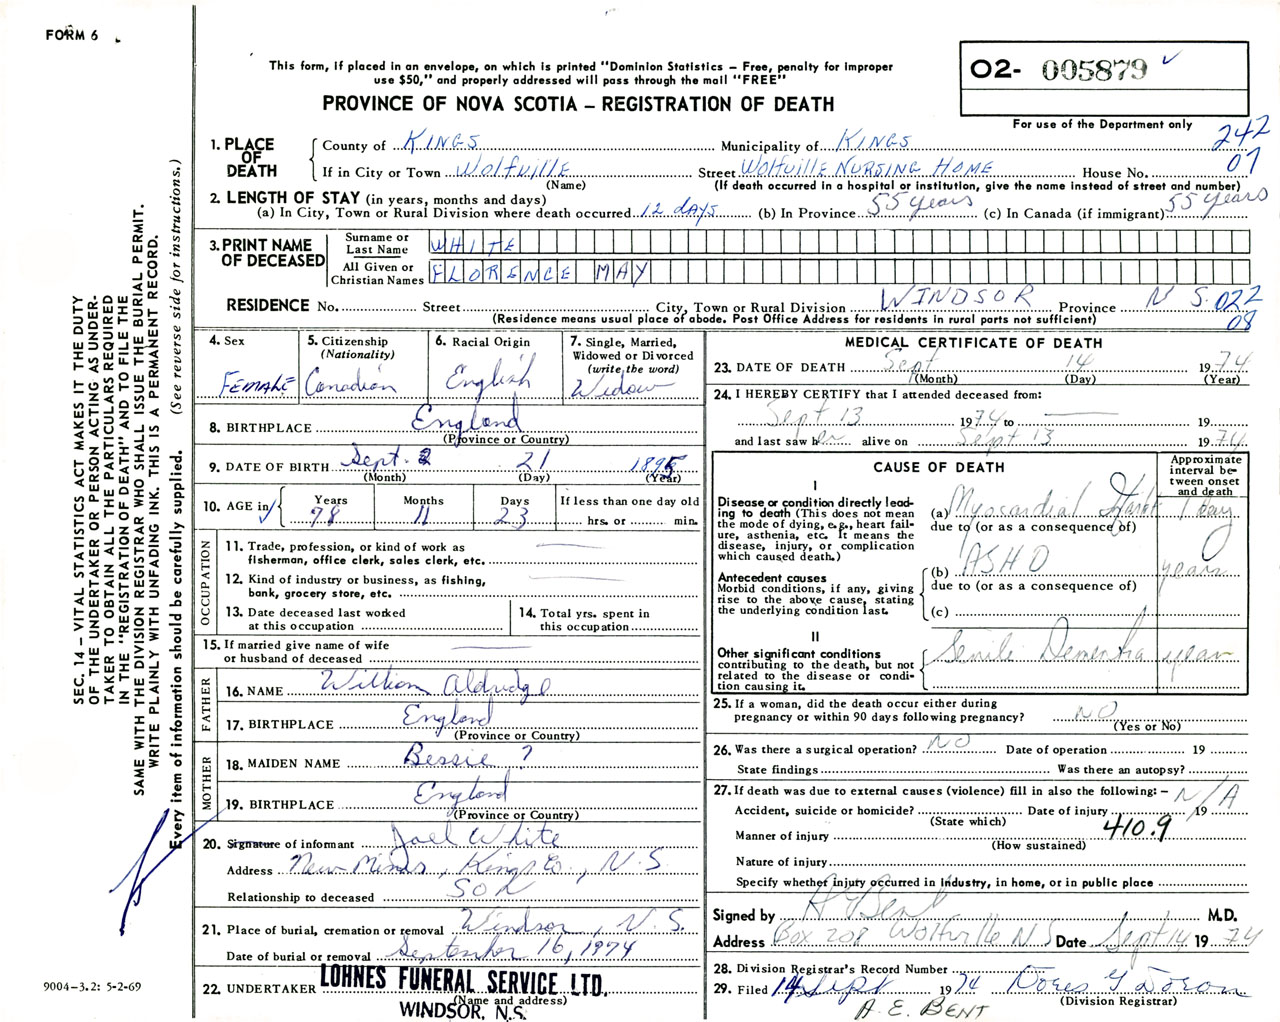 FORM 6
This form, if placed in an envelope, on which is printed "Dominion Statistics – Free, penalty for improper
use $50," and properly addressed will pass through the mail "FREE"
PROVINCE OF NOVA SCOTIA – REGISTRATION OF DEATH
02- 005879
For use of the Department only
242
07
1. PLACE OF DEATH
County of KINGS Municipality of KINGS
If in City or Town Wolfville Street Wolfville NURSING HOME House No.
(Name) (If death occurred in a hospital or institution, give the name instead of street and number)
2. LENGTH OF STAY (in years, months and days)
(a) In City, Town or Rural Division where death occurred 12 days (b) In Province 55 years (c) In Canada (if immigrant) 55 years
3. PRINT NAME OF DECEASED
Surname or Last Name WHITE
All Given or Christian Names FLORENCE MAY
RESIDENCE No. Street City, Town or Rural Division WINDSOR Province N S. 022
08
(Residence means usual place of abode. Post Office Address for residents in rural parts not sufficient)
4. Sex FEMALE
5. Citizenship (Nationality) Canadian
6. Racial Origin English
7. Single, Married, Widowed or Divorced (write the word) Widow
8. BIRTHPLACE England
(Province or Country)
9. DATE OF BIRTH Sept. 21 1895
(Month) (Day) (Year)
10. AGE in Years 78 Months 11 Days 23 If less than one day old hrs. or min.
OCCUPATION
11. Trade, profession, or kind of work as
fisherman, office clerk, sales clerk, etc.
12. Kind of industry or business, as fishing,
bank, grocery store, etc.
13. Date deceased last worked
at this occupation
14. Total yrs. spent in
this occupation
15. If married give name of wife
or husband of deceased
FATHER
16. NAME William Aldridge
17. BIRTHPLACE England
(Province or Country)
MOTHER
18. MAIDEN NAME Bessie ?
19. BIRTHPLACE England
(Province or Country)
20. Signature of informant Joel White
Address New Minas, Kings Co., N.S.
Relationship to deceased Son
21. Place of burial, cremation or removal Windsor, N.S.
Date of burial or removal September 16, 1974
22. UNDERTAKER LOHNES FUNERAL SERVICE LTD.
(Name and address)
WINDSOR, N.S.
MEDICAL CERTIFICATE OF DEATH
23. DATE OF DEATH Sept 14 1974
(Month) (Day) (Year)
24. I HEREBY CERTIFY that I attended deceased from:
Sept 13 1974 to 19
and last saw her alive on Sept 13 1974
CAUSE OF DEATH
Approximate interval between onset and death
I
Disease or condition directly lead-
ing to death (This does not mean
the mode of dying, e.g., heart fail-
ure, asthenia, etc. It means the
disease, injury, or complication
which caused death.)
(a) Myocardial 1 day
due to (or as a consequence of)
Antecedent causes
Morbid conditions, if any, giving
rise to the above cause, stating
the underlying condition last.
(b) ASHD years
due to (or as a consequence of)
(c)
II
Other significant conditions
contributing to the death, but not
related to the disease or condi-
tion causing it.
Senile Dementia year
25. If a woman, did the death occur either during
pregnancy or within 90 days following pregnancy? NO
(Yes or No)
26. Was there a surgical operation? NO Date of operation 19
State findings Was there an autopsy?
27. If death was due to external causes (violence) fill in also the following: – N/A
Accident, suicide or homicide? Date of injury 19
(State which)
410.9
Manner of injury
(How sustained)
Nature of injury
Specify whether injury occurred in industry, in home, or in public place
Signed by A E Bent M.D.
Address Box 208 Wolfville N S Date Sept 14 1974
28. Division Registrar's Record Number
29. Filed 14 Sept 1974 Doris G Doron
(Division Registrar)
A. E. BENT
SEC. 14 – VITAL STATISTICS ACT MAKES IT THE DUTY
OF THE UNDERTAKER OR PERSON ACTING AS UNDER-
TAKER TO OBTAIN ALL THE PARTICULARS REQUIRED
IN THE "REGISTRATION OF DEATH" AND TO FILE THE
SAME WITH THE DIVISION REGISTRAR WHO SHALL ISSUE THE BURIAL PERMIT.
WRITE PLAINLY WITH UNFADING INK. THIS IS A PERMANENT RECORD.
Every item of information should be carefully supplied. (See reverse side for instructions.)
9004-3.2: 5-2-69